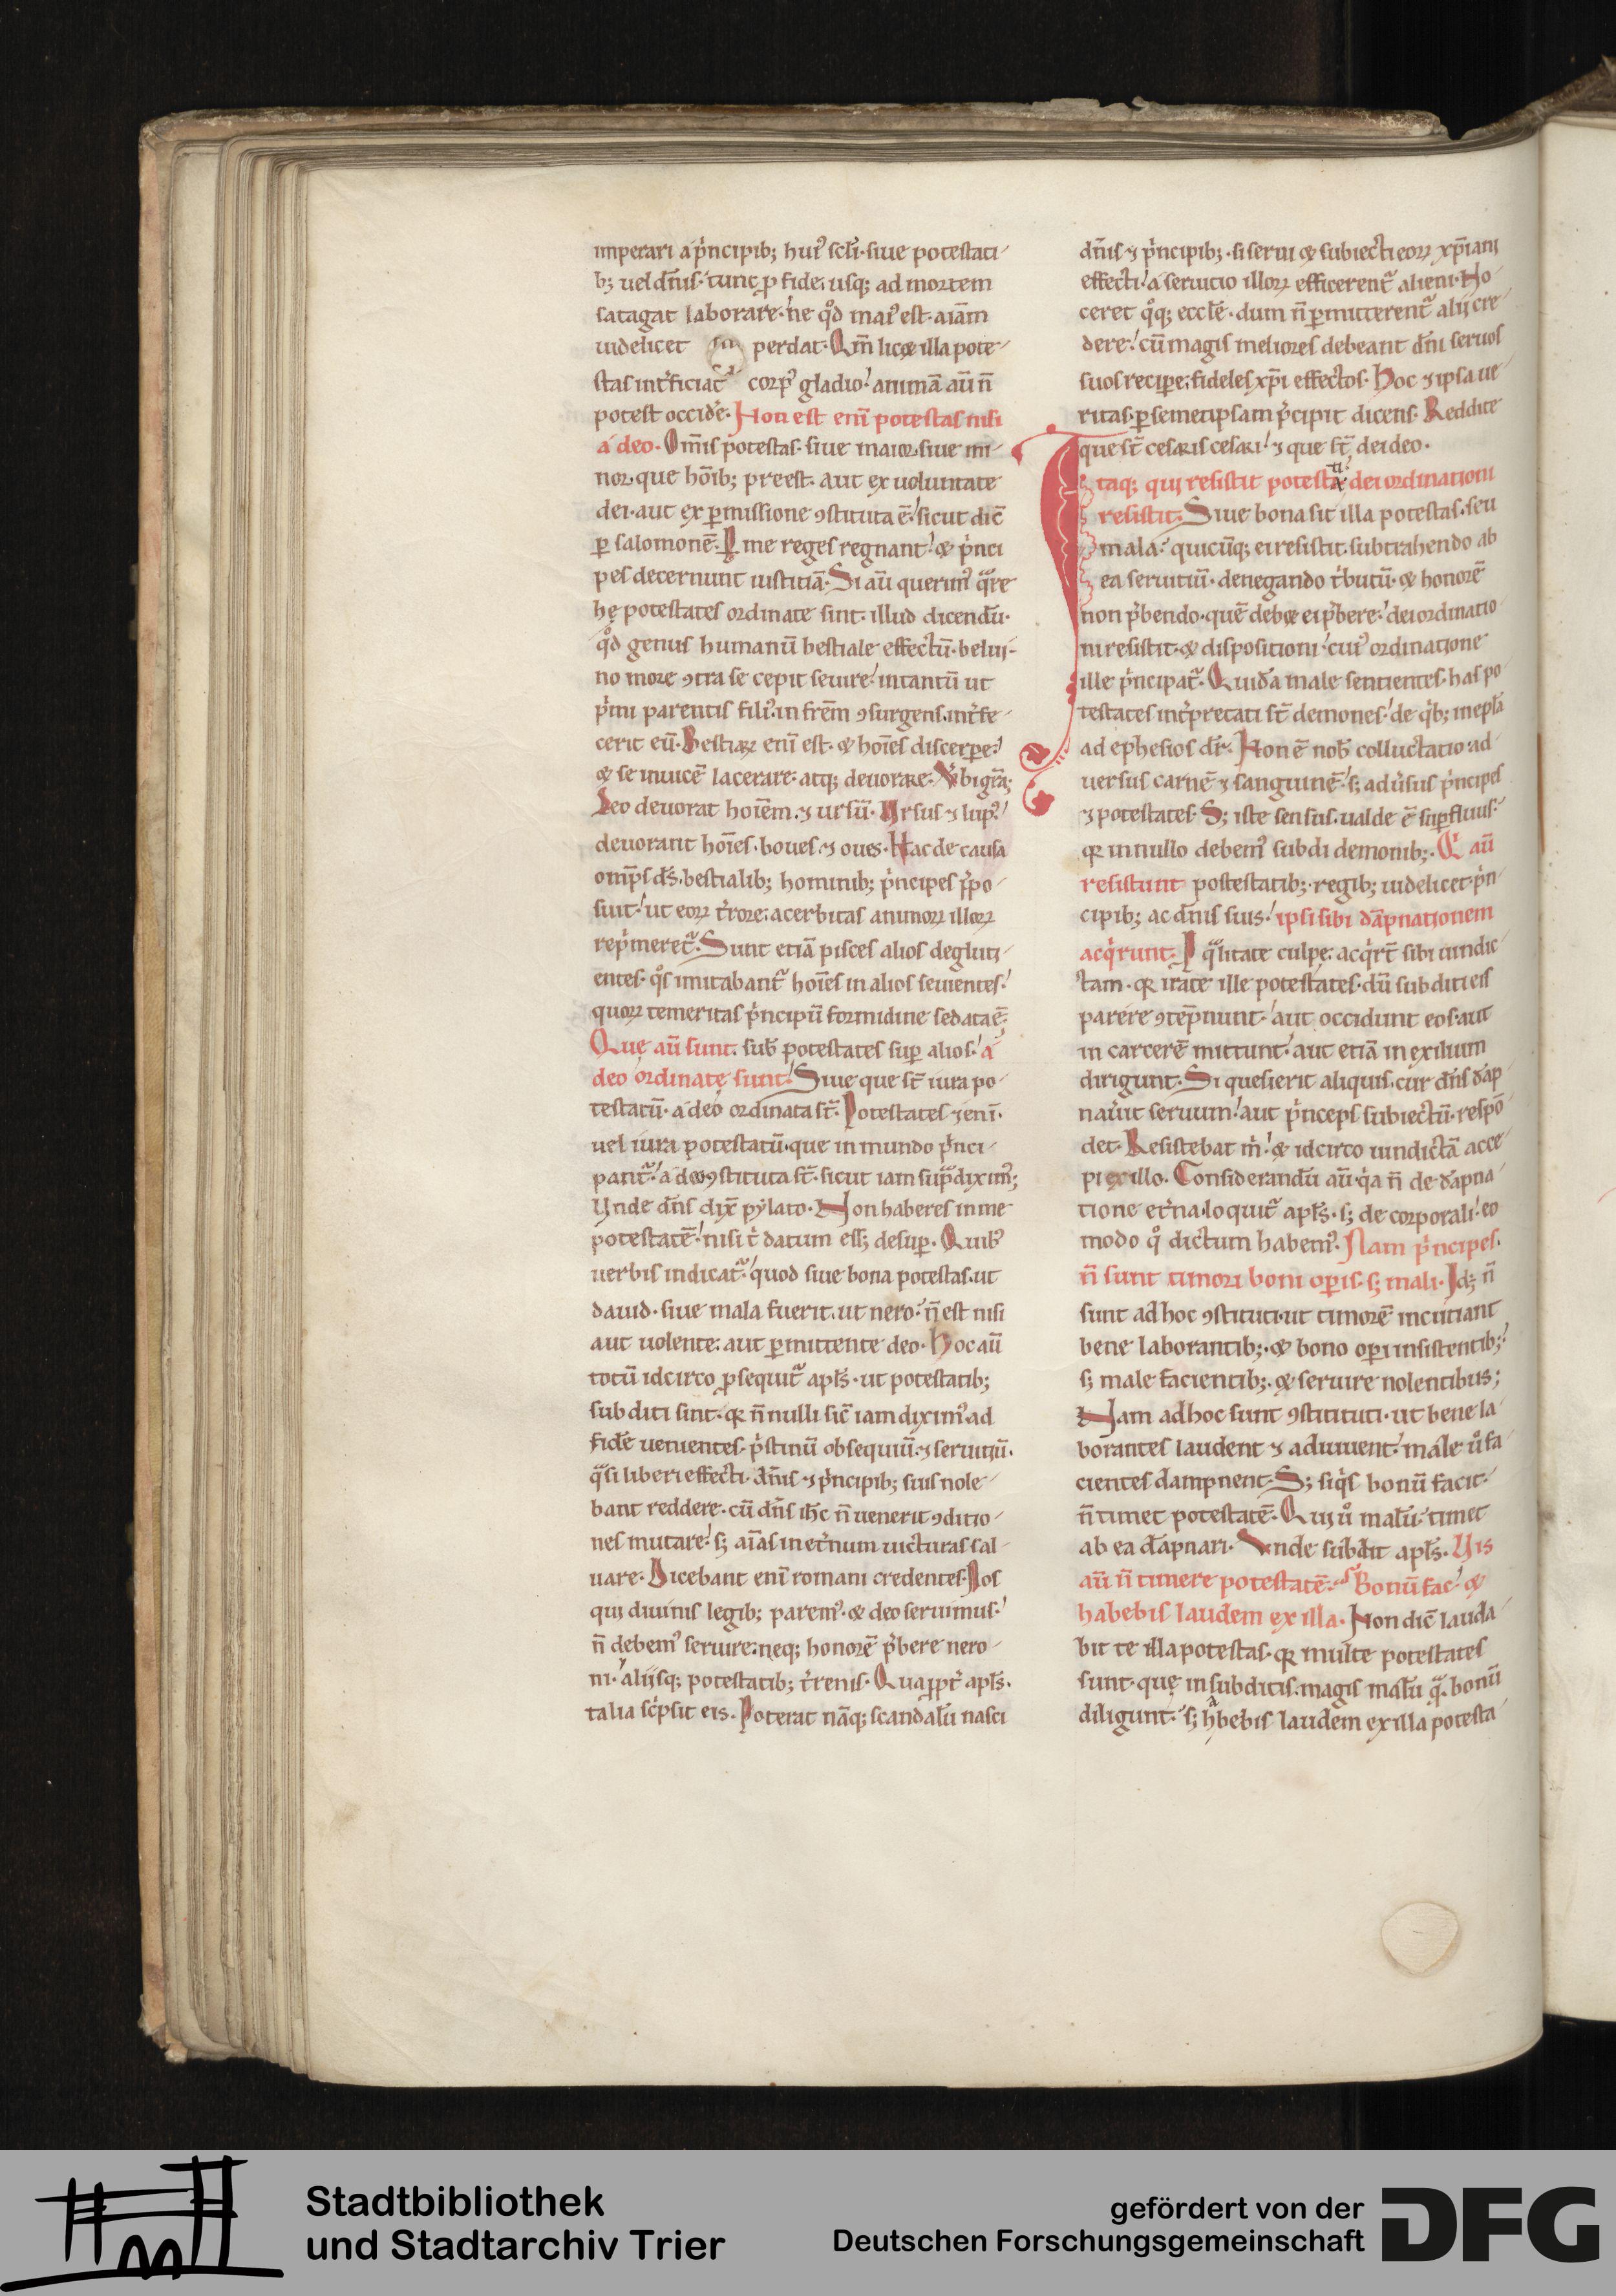 imperari a p̾ncipib; hui᷒ scłi. siue potestati-
b; uel dn̄is. tunc ꝓ fide. usq; ad mortem
satagat laborare. ne qͦd mai᷒ est. aīam
uidelicet perdat. Qm̄ licet illa pote-
stas int̾ficiat corp᷒ gladio! animā aū n̄
potest occid̾e. Non est eni potestas nisi
a deo. Om̄is potestas. siue maior. siue mi-
nor. que ho̅ib; preest. aut ex uoluntate
dei. aut ex ꝑmissione ꝯstituta ē. sicut dic̄
ꝑ salomonē. P me reges regnant! et p̾nci
pes decernunt iustitiā. Si aū querim᷒ qᷓre
hę potestates ordinate sint. illud dicendū.
qͦd genus humanū bestiale effectū. belui-
no more ꝯtra se cepit seuire! intantū ut
p̾mi parentis fili᷒. in frēm ꝯsurgens. int̾fe-
cerit eū. Bestiaꝝ eni est. et hoīes discerpe!
et se inuicē lacerare. atq; deuorare. Vbi grā;
Leo deuorat hoīem. ⁊ ursū. Ursus ⁊ lup᷒!
deuorant hoīes. boues. ⁊ oues. Hac de causa
omp̄s ds̄. bestialib; hominib; p̾ncipes p̾po-
suit! ut eoꝝ t̾rore. acerbitas animoꝝ illoꝝ
rep̾meretᷓ. Sunt etiā pisces alios degluti-
entes. qͦs imitabantᷓ hoīes in alios seuientes!
quoꝝ temeritas p̾ncipū formidine sedata ē.
Que aū sunt. sub̄ potestates suꝑ alios! a
deo ordinatę sunt! Siue que st̄ iura po-
testatū. a deo ordinata st̄. Potestates ⁊eni.
uel iura potestatū. que in mundo p̾nci-
pantᷓ! a deo ꝯstituta st̄. sicut iam supᷓdixim᷒;
Unde dn̄s dix̄ pylato. Non haberes in me
potestatē! nisi t̾ datum eēt; desuꝑ. Quib᷒
uerbis indicatᷓ! quod siue bona potestas. ut
dauid. siue mala fuerit. ut nero! n̄ est nisi
aut uolente. aut ꝑmittente deo. Hoc aū
totū idcirco ꝓsequitᷓ apłs. ut potestatib;
subditi sint. qꝛ n̄nulli sic̄ iam dixim᷒ ad
fidē uenientes. p̾stinū obsequiū. ⁊ seruitiū.
qᷓsi liberi effecti. dn̄is ⁊ p̾ncipib; suis nole-
bant reddere. cū dn̄s ih̄c n̄ uenerit ꝯditio-
nes mutare! s; aīas in et̾num uicturas sal-
uare. Dicebant eni romani credentes. Nos
qui diuinis legib; parem᷒. et deo seruimus!
n̄ debem᷒ seruire. neq; honorē p̾bere nero-
ni. alijsq; potestatib; t̾renis. Quaꝓpt̾ apłs.
talia sc̾psit eis. Poterat nāq; scandalū nasci
dn̄is ⁊ p̾ncipib;. si serui et subiecti eoꝝ xp̄iani
effecti! a seruitio illoꝝ efficerentᷓ alieni. No-
ceret qͦq; eccłe. dum n̄ ꝑmitterentᷓ alij cre-
dere! cū magis meliores debeant dn̄i seruos
suos recipe. fideles xp̄i effectos. Hoc ⁊ ipsa ue-
ritas. ꝑ semetipsam p̾cipit dicens. Reddite
que st̄ cesaris cesari! ⁊ que st̄ dei deo.
Itaq; qui resistit potestati dei ordinationi
resistit. Siue bona sit illa potestas. seu
mala! quicūq; ei resistit. subtrahendo ab
ea seruitiū. denegando t̾butū. et honorē
non p̾bendo. quē debet ei p̾bere! dei ordinatio-
ni resistit. et dispositioni! cui᷒ ordinatione
ille p̾ncipatᷓ. Quidā male sentientes. has po
testates int̾pretati st̄ demones! de q̾b; in epła
ad ephesios dr̄. Non ē nob̄ colluctatio ad-
uersus carnē ⁊ sanguinē! s; adu̾sus p̾ncipes
⁊ potestates. S; iste sensus. ualde ē suꝑfluus.
qꝛ in nullo debem᷒ subdi demonib;. Q aū
resistunt postestatib;. regib; uidelicet. p̾n-
cipib; ac dn̄is suis! ipsi sibi dāpnationem
acq̾runt. P qᷓlitate culpe. acq̾rt̄ sibi uindic-
tam. qꝛ iratę ille potestates. dū subditi eis
parere ꝯtēpnunt! aut occidunt eos. aut
in carcerē mittunt! aut etiā in exilium
dirigunt. Si quesierit aliquis. cur dn̄s dāp
nau̾it seruum! aut p̾nceps subiectū. respō
det. Resistebat m̾! et idcirco uindictā acce-
pi ex illo. Considerandū aū. q̾a n̄ de dāpna-
tione et̾na loquitᷓ apłs. s; de corporali! eo
modo qͦ dictum habem᷒. Nam p̾ncipes.
n̄ sunt timori boni oꝑis. s; mali. Id; n̄
sunt ad hoc ꝯstituti. ut timorē incutiant
bene laborantib;. et bono oꝑi insistentib;!
s; male facientib;. et seruire nolentibus;
Nam ad hoc sunt ꝯstituti. ut bene la-
borantes laudent ⁊ adiuuent! male uͦ fa-
cientes dampnent. S; siq̾s bonū facit.
n̄ timet potestatē. Qui uͦ malū. timet
ab ea dāpnari. Vnde subdit apłs. Uis
aū n̄ timere potestatē. Bonū fac! et
habebis laudem ex illa. Non dic̄ lauda-
bit te illa potestas. qꝛ multe potestates
sunt. quę in subditis. magis malū qᷓ. bonū
diligunt. s; habebis laudem ex illa potesta-
Stadtbibliothek
und Stadtarchiv Trier
gefördert von der
Deutschen Forschungsgemeinschaft
DFG